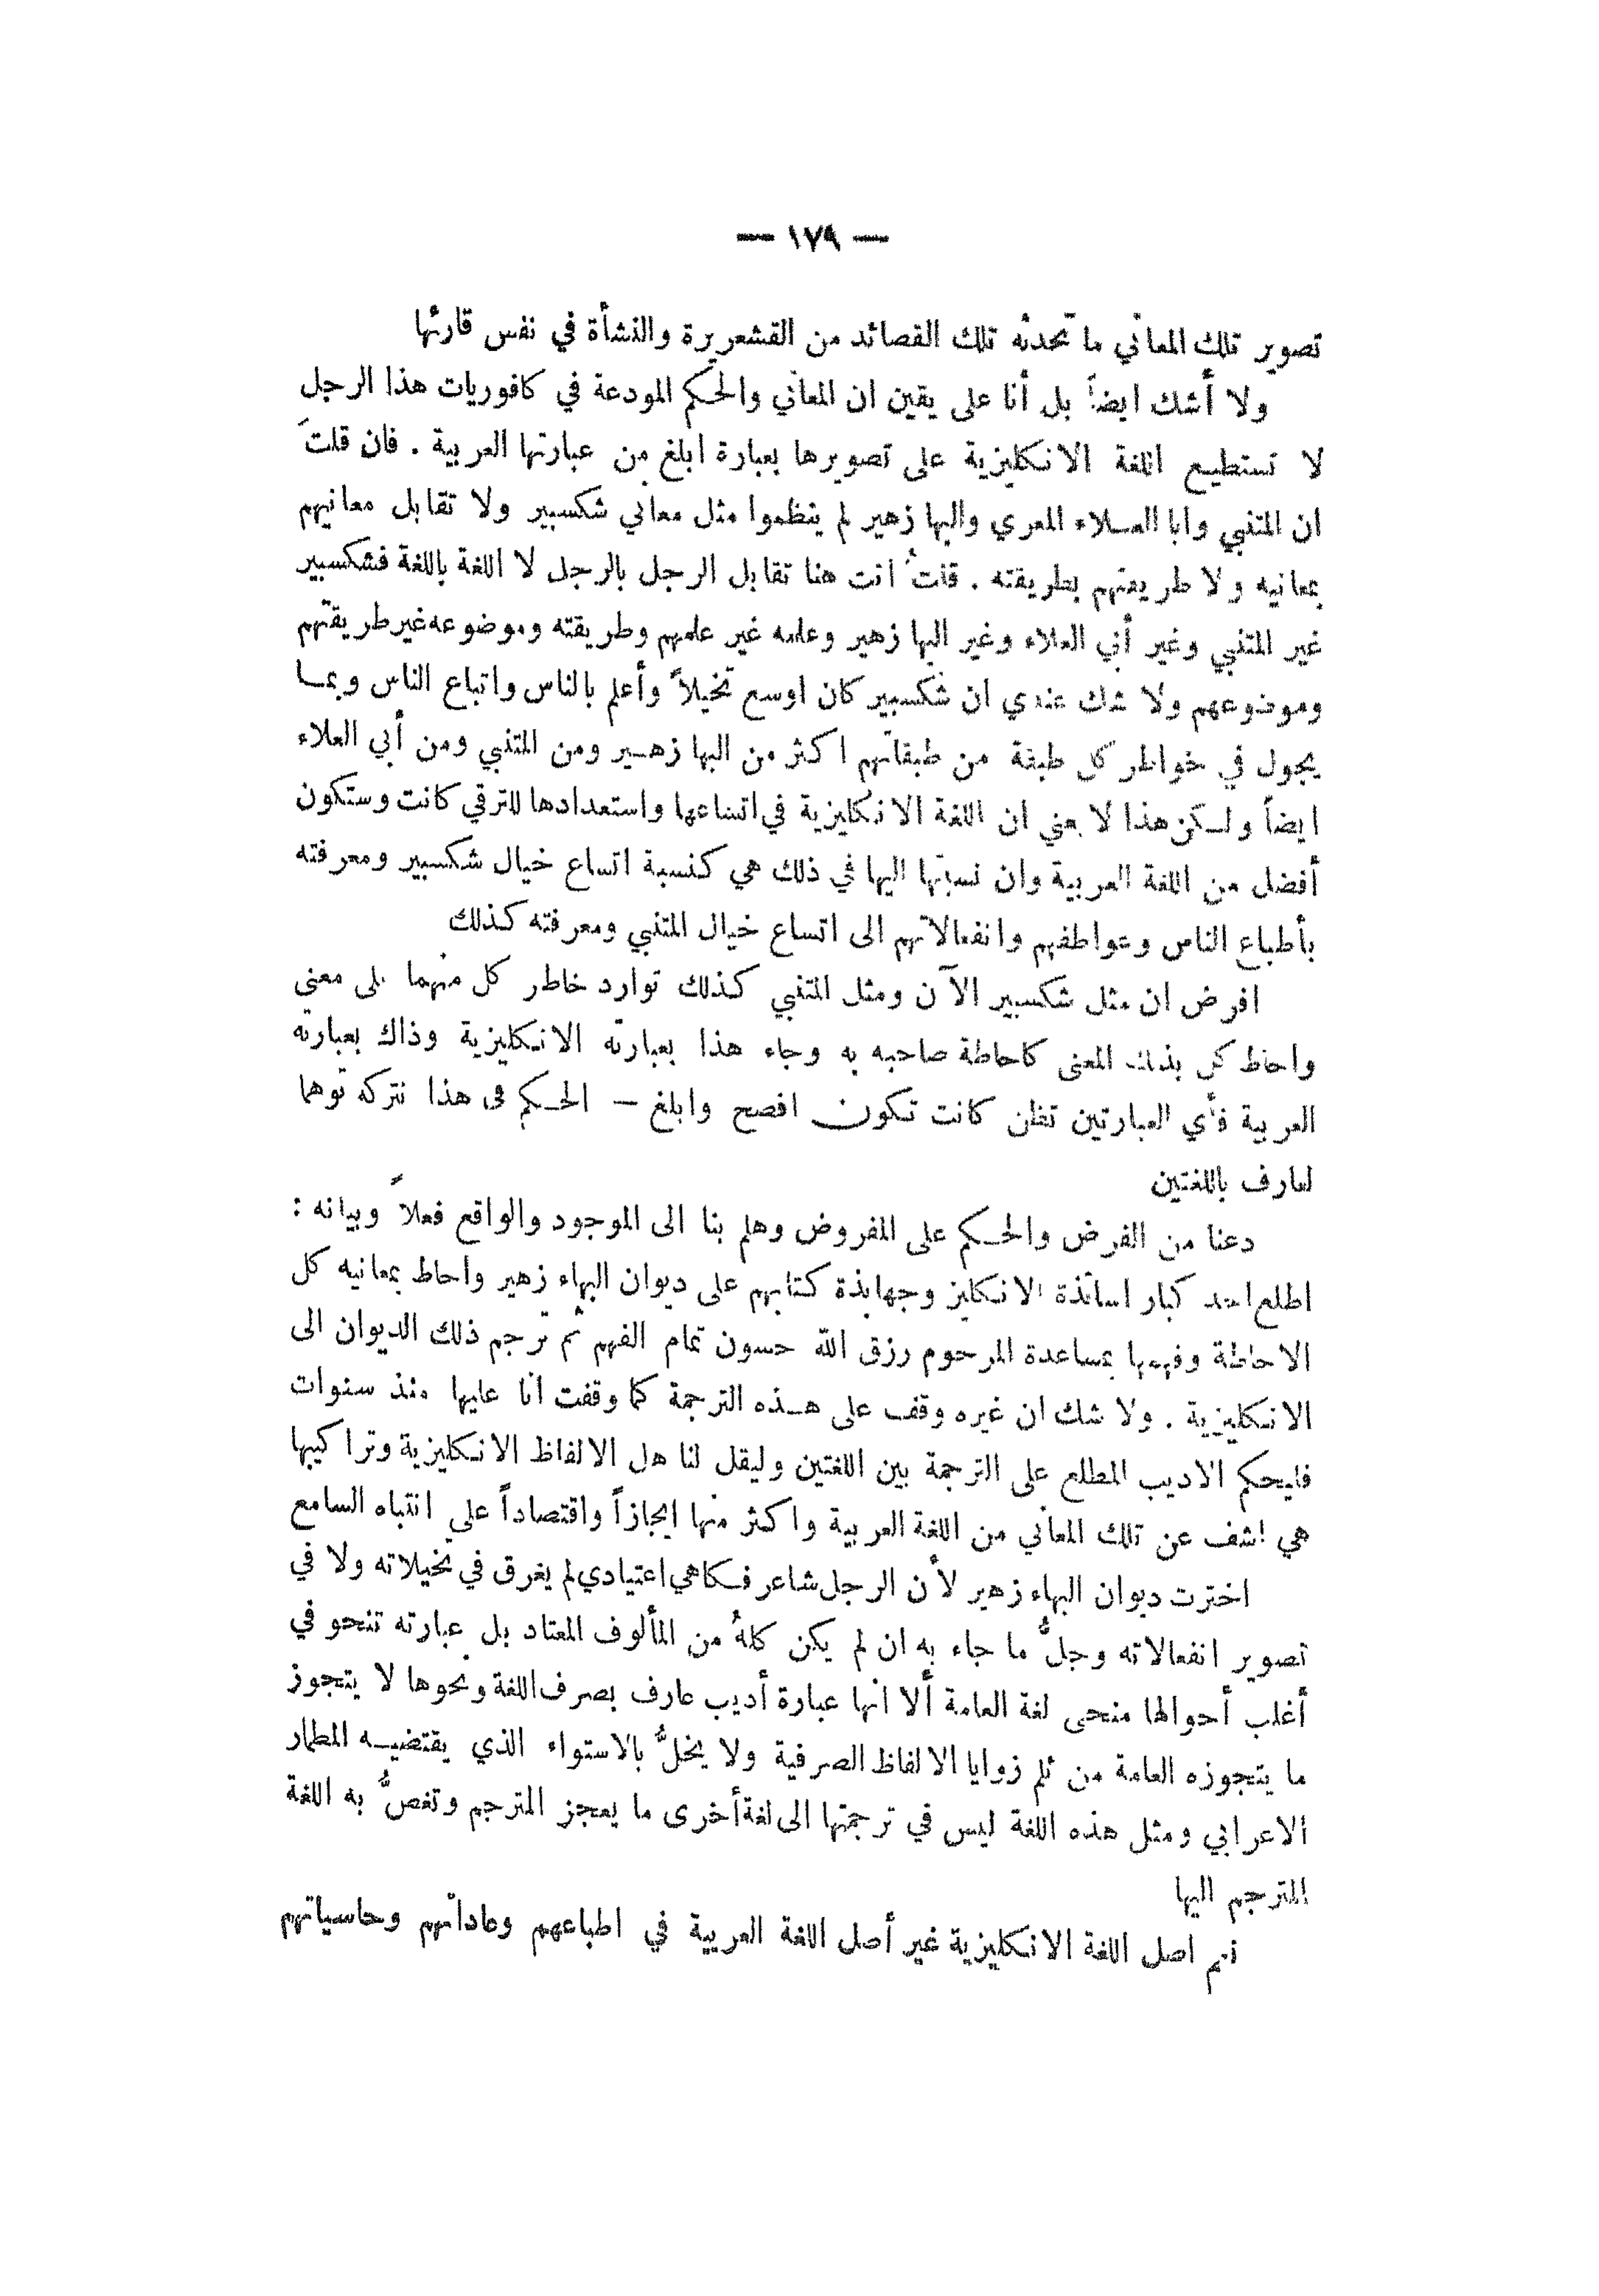 — ١٧٩ —
تصوير تلك المعاني ما تحدثه تلك القصائد من القشعريرة والنشأة في نفس قارئها
ولا أشك ايضاً بل أنا على يقين ان المعاني والحكم المودعة في كافوريات هذا الرجل
لا تستطيع اللغة الانكليزية على تصويرها بعبارة ابلغ من عبارتها العربية . فان قلتَ
ان المتنبي وابا العلاء المعري والبها زهير لم ينظموا مثل معاني شكسبير ولا تقابل معانيهم
بمعانيه ولا طريقتهم بطريقته . قلتُ انت هنا تقابل الرجل بالرجل لا اللغة باللغة فشكسبير
غير المتنبي وغير أبي العلاء وغير البها زهير وعلمه غير علمهم وطريقته وموضوعه غير طريقتهم
وموضوعهم ولا شك عندي ان شكسبير كان اوسع تخيلاً وأعلم بالناس واتباع الناس وبما
يجول في خواطر كل طبقة من طبقاتهم اكثر من البها زهير ومن المتنبي ومن أبي العلاء
ايضاً ولكن هذا لا يعني ان اللغة الانكليزية في اتساعها واستعدادها للترقي كانت وستكون
أفضل من اللغة العربية وان نسبتها اليها في ذلك هي كنسبة اتساع خيال شكسبير ومعرفته
بأطباع الناس وعواطفهم وانفعالاتهم الى اتساع خيال المتنبي ومعرفته كذلك
افرض ان مثل شكسبير الآن ومثل المتنبي كذلك توارد خاطر كل منهما على معنى
واحاط كل بذلك المعنى كاحاطة صاحبه به وجاء هذا بعبارته الانكليزية وذاك بعبارته
العربية فأي العبارتين تظن كانت تكون افصح وابلغ — الحكم في هذا نتركه توهما
لعارف باللغتين
دعنا من الفرض والحكم على المفروض وهلم بنا الى الموجود والواقع فعلاً وبيانه :
اطلع احد كبار اساتذة الانكليز وجهابذة كتابهم على ديوان البهاء زهير واحاط بمعانيه كل
الاحاطة وفهمها بمساعدة المرحوم رزق الله حسون تمام الفهم ثم ترجم ذلك الديوان الى
الانكليزية . ولا شك ان غيره وقف على هذه الترجمة كما وقفت انا عليها منذ سنوات
فليحكم الاديب المطلع على الترجمة بين اللغتين وليقل لنا هل الالفاظ الانكليزية وتراكيبها
هي اشف عن تلك المعاني من اللغة العربية واكثر منها ايجازاً واقتصاداً على انتباه السامع
اخترت ديوان البهاء زهير لأن الرجل شاعر فكاهي اعتيادي لم يغرق في تخيلاته ولا في
تصوير انفعالاته وجلُّ ما جاء به ان لم يكن كلهُ من المألوف المعتاد بل عبارته تنحو في
أغلب أحوالها منحى لغة العامة ألا انها عبارة أديب عارف بصرف اللغة ونحوها لا يتجوز
ما يتجوزه العامة من ثلم زوايا الالفاظ الصرفية ولا يخلُّ بالاستواء الذي يقتضيه المطمار
الاعرابي ومثل هذه اللغة ليس في ترجمتها الى لغة أخرى ما يعجز المترجم وتغصُّ به اللغة
المترجم اليها
نعم اصل اللغة الانكليزية غير أصل اللغة العربية في اطباعهم وعاداتهم وحاسياتهم